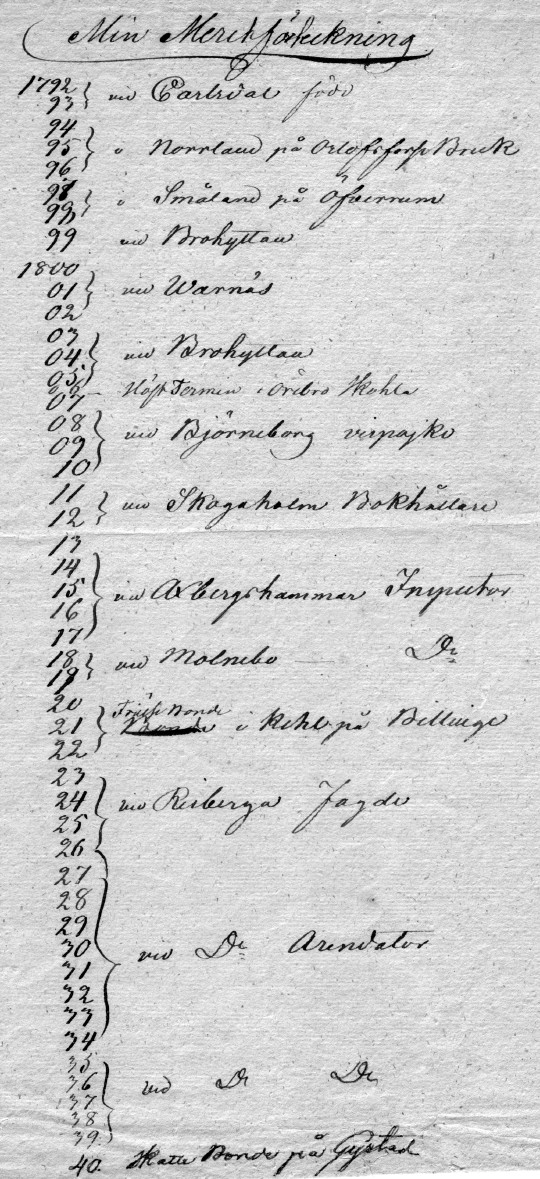 Min Meritförteckning
1792
93 } vid Carlsdal född
94
95 } i Norrland på Olofsfors Bruk
96
98 } i Småland på Öfverrum
99
99 vid Brohyttan
1800
01 } vid Warnäs
02
03
04 } vid Brohyttan
05
06
07 – Höst Termin i Örebro Skohla
08
09 } vid Björneborg
10
11
12 } vid Skogaholm Bokhållare
13
14
15 } vid Axbergshammar Inspector
16
17
18 } vid Molnebo — Do
19
20
21 } Frälse Bonde i Kihl på Billinge
22
23
24 } vid Riseberga
25
26
27
28
29
30 } vid Do Arendator
31
32
33
34
35
36 } vid Do Do
37
38
39
40. Skatte Bonde på